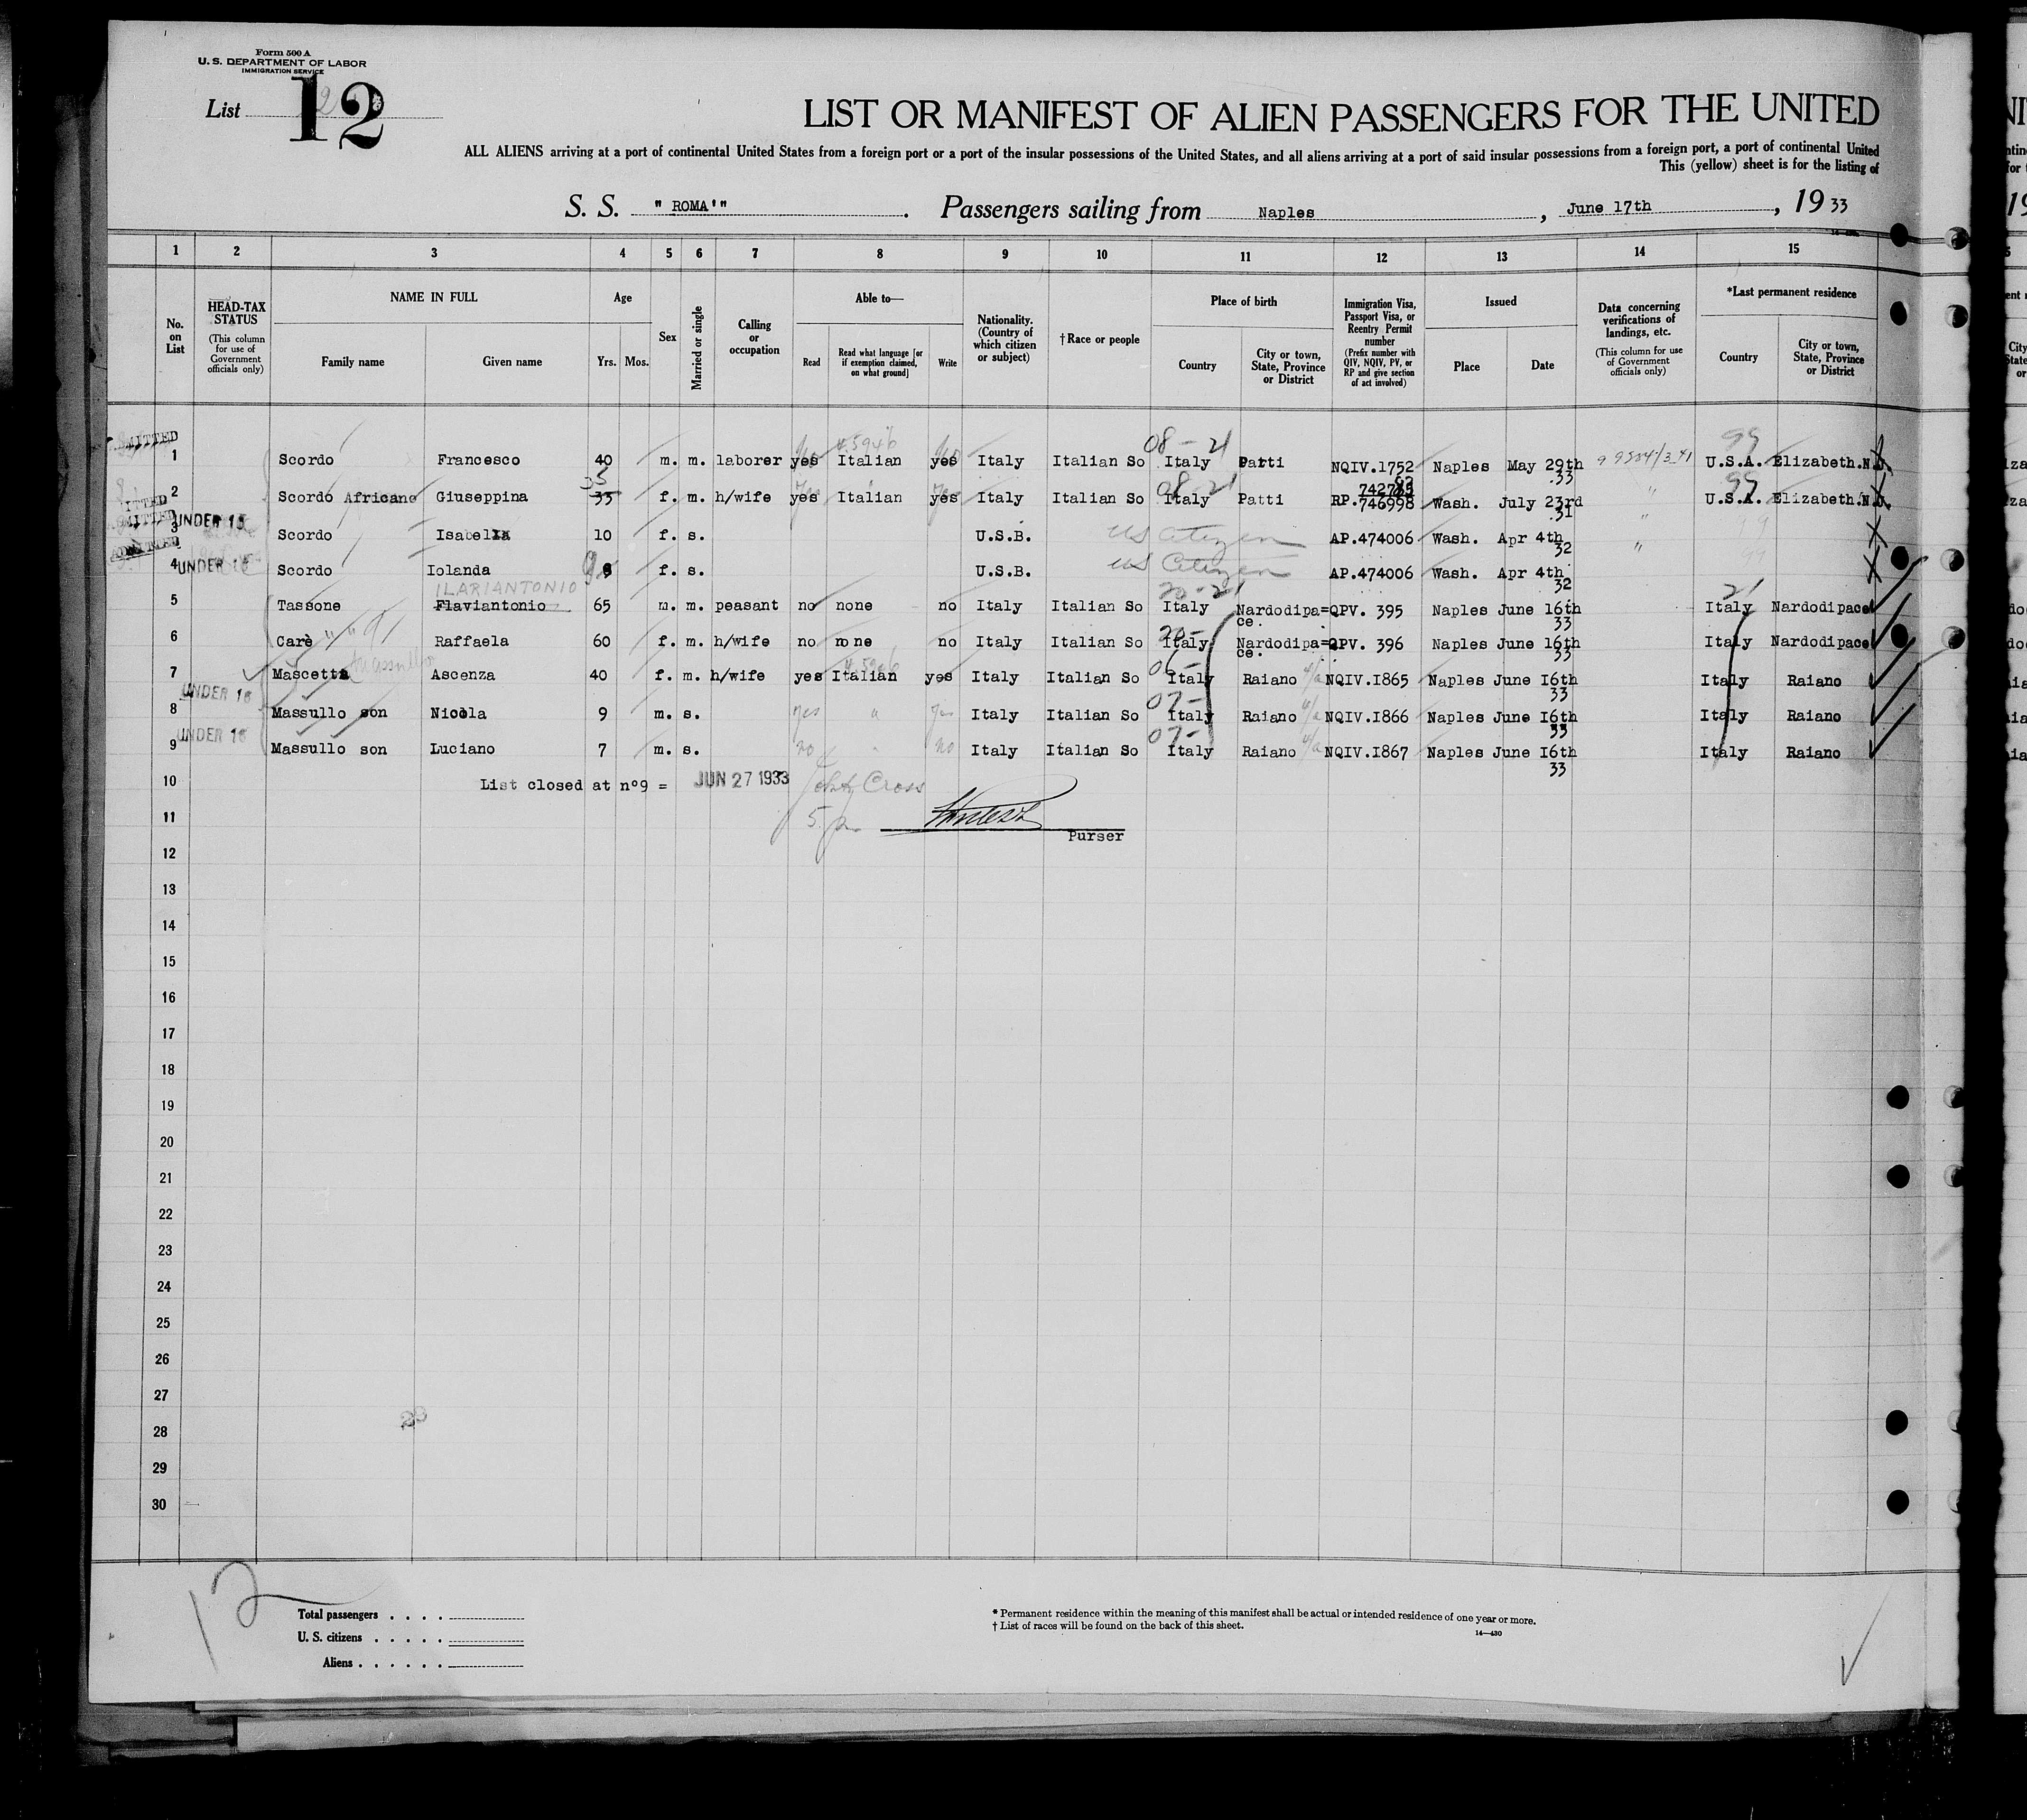 Form 500 A
U. S. DEPARTMENT OF LABOR
IMMIGRATION SERVICE
List 12
LIST OR MANIFEST OF ALIEN PASSENGERS FOR THE UNITED
ALL ALIENS arriving at a port of continental United States from a foreign port or a port of the insular possessions of the United States, and all aliens arriving at a port of said insular possessions from a foreign port, a port of continental United
This (yellow) sheet is for the listing of
S. S. " ROMA'" . Passengers sailing from Naples , June 17th , 19 33
1 2 3 4 5 6 7 8 9 10 11 12 13 14 15
No. on List
HEAD-TAX STATUS (This column for use of Government officials only)
NAME IN FULL Family name Given name
Age Yrs. Mos.
Sex
Married or single
Calling or occupation
Able to— Read Read what language [or if exemption claimed, on what ground] Write
Nationality. (Country of which citizen or subject)
† Race or people
Place of birth Country City or town, State, Province or District
Immigration Visa, Passport Visa, or Reentry Permit number (Prefix number with QIV, NQIV, PV, or RP and give section of act involved)
Issued Place Date
Data concerning verifications of landings, etc. (This column for use of Government officials only)
*Last permanent residence Country City or town, State, Province or District
08 - 21 99
1 Scordo Francesco 40 m. m. laborer yes Italian yes Italy Italian So Italy Patti NQIV.1752 Naples May 29th 33 U.S.A. Elizabeth.N.J.
35 08-21 742785 99
2 Scordo Africano Giuseppina 33 f. m. h/wife yes Italian yes Italy Italian So Italy Patti RP.746998 Wash. July 23rd 31 " U.S.A. Elizabeth.N.J.
UNDER 16
3 Scordo Isabella 10 f. s. U.S.B. US Citizen AP.474006 Wash. Apr 4th 32 "
UNDER 16
4 Scordo Iolanda 9 f. s. U.S.B. US Citizen AP.474006 Wash. Apr 4th. 32 "
ILARIANTONIO 20-21 21
5 Tassone Flaviantonio 65 m. m. peasant no none no Italy Italian So Italy Nardodipa=ce. QPV. 395 Naples June 16th 33 Italy Nardodipace
6 Carè " " Raffaela 60 f. m. h/wife no none no Italy Italian So Italy Nardodipa=ce. QPV. 396 Naples June 16th 33 Italy Nardodipace
7 Mascetta Ascenza 40 f. m. h/wife yes Italian yes Italy Italian So Italy Raiano NQIV.I865 Naples June I6th 33 Italy Raiano
UNDER 16
8 Massullo son Nicola 9 m. s. yes " yes Italy Italian So Italy Raiano NQIV.I866 Naples June I6th 33 Italy Raiano
UNDER 16
9 Massullo son Luciano 7 m. s. no no Italy Italian So Italy Raiano NQIV.I867 Naples June I6th 33 Italy Raiano
10 List closed at nº9 = JUN 27 1933
11
Purser
12
13
14
15
16
17
18
19
20
21
22
23
24
25
26
27
28
29
30
12
Total passengers . . . .
U. S. citizens . . . . .
Aliens . . . . . .
* Permanent residence within the meaning of this manifest shall be actual or intended residence of one year or more.
† List of races will be found on the back of this sheet.
14—430